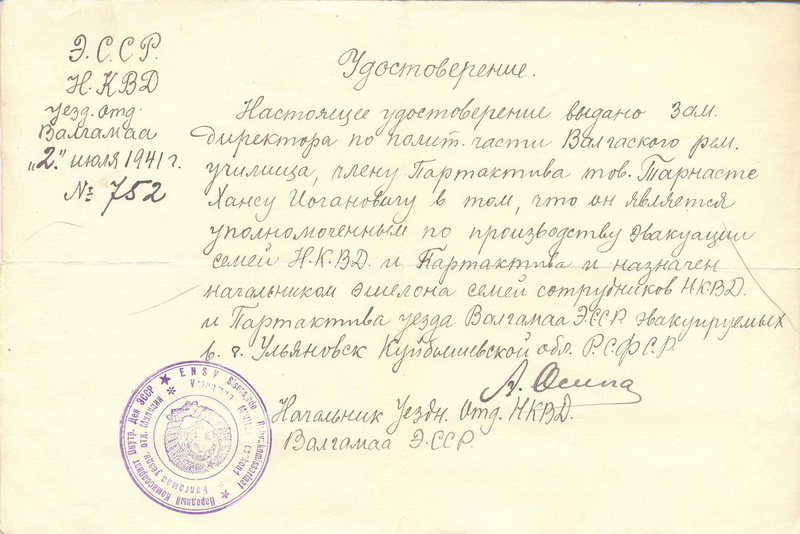 Э.С.С.Р.
Н.КВД
уезд. отд.
Валгамаа
„2." июля 1941 г.
№ 752
Удостоверение.
Настоящее удостоверение выдано зам.
директора по полит. части Валгаского рем.
училища, члену Партактива тов. Тарнасте
Хансу Иогановичу в том, что он является
уполномоченным по производству эвакуации
семей Н.К.В.Д. и Партактива и назначен
начальником эшелона семей сотрудников Н.К.В.Д.
и Партактива уезда Валгамаа Э.С.С.Р. эвакуируемых
в г. Ульяновск Куйбышевской обл. Р.С.Ф.С.Р.
Начальник Уездн. Отд. НКВД.
Валгамаа Э.С.С.Р.
Народный Комиссариат Внутр. Дел ЭССР ★ ENSV Siseasjade Rahvakomissariaat ★
Валгамаа уездн. отд. милиции